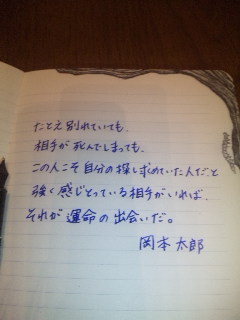 たとえ別れていても、
相手が死んでしまっても、
この人こそ自分の探し求めていた人だと
強く感じとっている相手がいれば、
それが運命の出会いだ。
岡本太郎